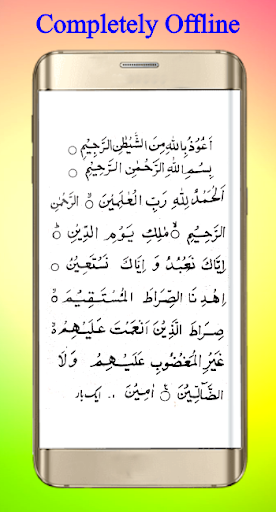 Completely Offline
اَعُوْذُ بِاللّٰهِ مِنَ الشَّيْطٰنِ الرَّجِيْمِ ○
بِسْمِ اللّٰهِ الرَّحْمٰنِ الرَّحِيْمِ ○
اَلْحَمْدُ لِلّٰهِ رَبِّ الْعٰلَمِيْنَ ○ الرَّحْمٰنِ
الرَّحِيْمِ ○ مٰلِكِ يَوْمِ الدِّيْنِ ○
اِيَّاكَ نَعْبُدُ وَ اِيَّاكَ نَسْتَعِيْنُ ○
اِهْدِنَا الصِّرَاطَ الْمُسْتَقِيْمَ ○
صِرَاطَ الَّذِيْنَ اَنْعَمْتَ عَلَيْهِمْ ○
غَيْرِ الْمَغْضُوْبِ عَلَيْهِمْ وَلَا
الضَّآلِّيْنَ ○ اٰمِيْن ۔۔ ایک بار